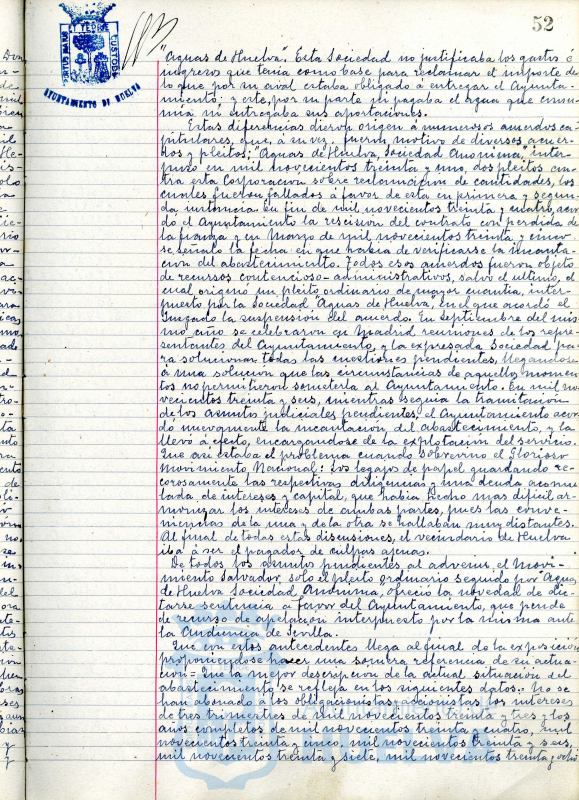 52
AYUNTAMIENTO DE HUELVA
"Aguas de Huelva". Esta Sociedad no justificaba los gastos é
ingresos que tenia como base para reclamar el importe de
lo que por su aval estaba obligado á entregar el Ayunta-
miento; y este, por su parte ni pagaba el agua que consu-
mia ni entregaba sus aportaciones.
Estas diferencias dieron origen á numerosos acuerdos ca-
pitulares, que, á su vez, fueron motivo de diversos acuer-
dos y pleitos; "Aguas de Huelva, Sociedad Anonima", inter-
puso en mil novecientos treinta y uno, dos pleitos con-
tra esta Corporacion sobre reclamacion de cantidades, los
cuales fueron fallados á favor de esta en primera y segun-
da instancia en fin de mil novecientos treinta y cuatro, acor-
dó el Ayuntamiento la rescision del contrato con perdida de
la fianza y en Marzo de mil novecientos treinta y cinco
se señaló la fecha en que habia de verificarse la incauta-
cion del abastecimiento. Todos esos acuerdos fueron objeto
de recursos contencioso-administrativos, salvo el ultimo, el
cual originó un pleito ordinario de mayor cuantia, inter-
puesto por la Sociedad "Aguas de Huelva", en el que acordó el
Juzgado la suspension del acuerdo. En septiembre del mis-
mo año se celebraron en Madrid reuniones de los repre-
sentantes del Ayuntamiento, y la expresada Sociedad pa-
ra solucionar todas las cuestiones pendientes, llegandose
á una solucion que las circunstancias de aquellos momen-
tos no permitieron someterla al Ayuntamiento. En mil no-
vecientos treinta y seis, mientras seguia la tramitación
de los asuntos judiciales pendientes, el Ayuntamiento acor-
dó nuevamente la incautacion del abastecimiento, y la
llevó á efecto, encargandose de la explotación del servicio.
Que asi estaba el problema cuando sobrevino el Glorioso
Movimiento Nacional: Los legajos de papel guardando de-
corosamente las respectivas diligencias y una deuda acumu-
lada de intereses y capital, que habia hecho mas dificil ar-
monizar los intereses de ambas partes, pues las conve-
niencias de la una y de la otra se hallaban muy distantes.
Al final de todas estas discusiones, el vecindario de Huelva
iba á ser el pagador de culpas ajenas.
De todos los asuntos pendientes, al advenir el Movi-
miento Salvador, solo el pleito ordinario seguido por Aguas
de Huelva Sociedad Anonima, ofreció la novedad de dic-
tarse sentencia a favor del Ayuntamiento, que pende
de recurso de apelacion interpuesto por la misma ante
la Audiencia de Sevilla.
Que con estos antecedentes llega al final de la exposicion
proponiendose hacer una somera referencia de su actua-
cion = Que la mejor descripcion de la actual situacion del
abastecimiento se refleja en los siguientes datos: No se
han abonado á los obligacionistas, accionistas los intereses
de tres trimestres de mil novecientos treinta y tres y los
años completos de mil novecientos treinta y cuatro, mil
novecientos treinta y cinco, mil novecientos treinta y seis,
mil novecientos treinta y siete, mil novecientos treinta y ocho